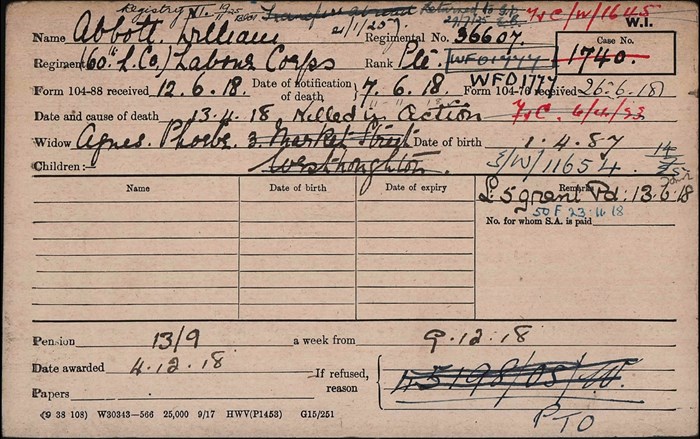 Registry Transfer abroad Returned to 29/7/25 7+C/W/1645
W.I.
Name Abbott. William 21/1/257 Regimental No. 36607. Case No.
Regiment (60th L. Co.) Labour Corps Rank Pte. WF01777 1740.
Form 104-88 received 12.6.18. Date of notification of death 7.6.18. WF01777 Form 104-76 received 26.6.18
Date and cause of death 13.4.18 Killed in Action 7+C. 6/11/33
Widow Agnes. Phoebe. 3. Market Street Date of birth 1.4.87
Children:— Westhoughton S/W/11654. 14
Name Date of birth Date of expiry Remarks
L.5 grant Pd: 13.6.18
50F 23.11.18
No. for whom S.A. is paid
Pension 13/9 a week from 9.12.18
Date awarded 4.12.18 If refused, reason
Papers
(9 38 108) W30343—566 25,000 9/17 HWV(P1453) G15/251
PTO